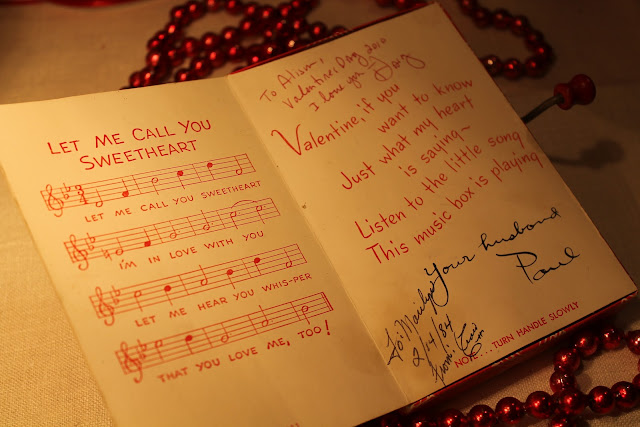 LET ME CALL YOU
SWEETHEART
LET ME CALL YOU SWEETHEART
I'M IN LOVE WITH YOU
LET ME HEAR YOU WHIS-PER
THAT YOU LOVE ME, TOO!
To Alison,
Valentine's Day 2010
I love you
Valentine, if you
want to know
Just what my heart
is saying~
Listen to the little song
This music box is playing
Your husband
Paul
To: Marilyn
2/14/84
From:
NOTE...TURN HANDLE SLOWLY